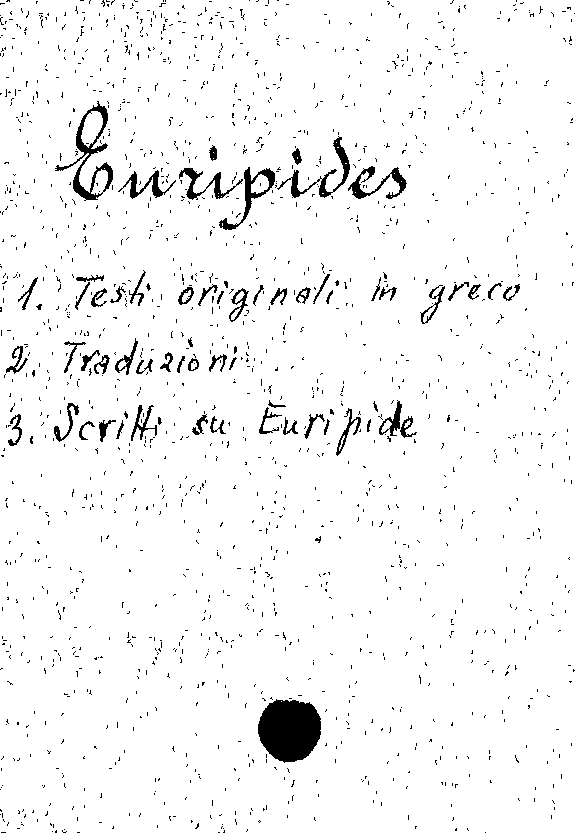 Euripides
1. Testi originali in greco
2. Traduzioni
3. Scritti su Euripide